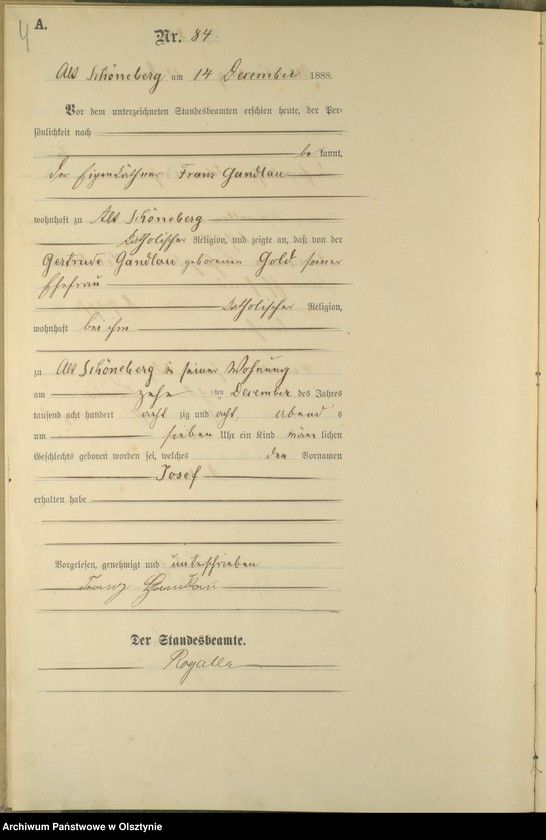 4 A.
Nr. 84.
Alt Schöneberg am 14 December 1888.
Vor dem unterzeichneten Standesbeamten erschien heute, der Per-
sönlichkeit nach
be kannt,
der Eigenkäthner Franz Gandlau
wohnhaft zu Alt Schöneberg
katholischer Religion, und zeigte an, daß von der
Gertrude Gandlau geborenen Gold, seiner
Ehefrau
katholischer Religion,
wohnhaft bei ihm
zu Alt Schöneberg in seiner Wohnung
am zehn ten December des Jahres
tausend acht hundert acht zig und acht, abend s
um sieben Uhr ein Kind männ lichen
Geschlechts geboren worden sei, welches den Vornamen
Josef
erhalten habe
Vorgelesen, genehmigt und unterschrieben
Franz Gandlau
Der Standesbeamte.
Rogalla
Archiwum Państwowe w Olsztynie